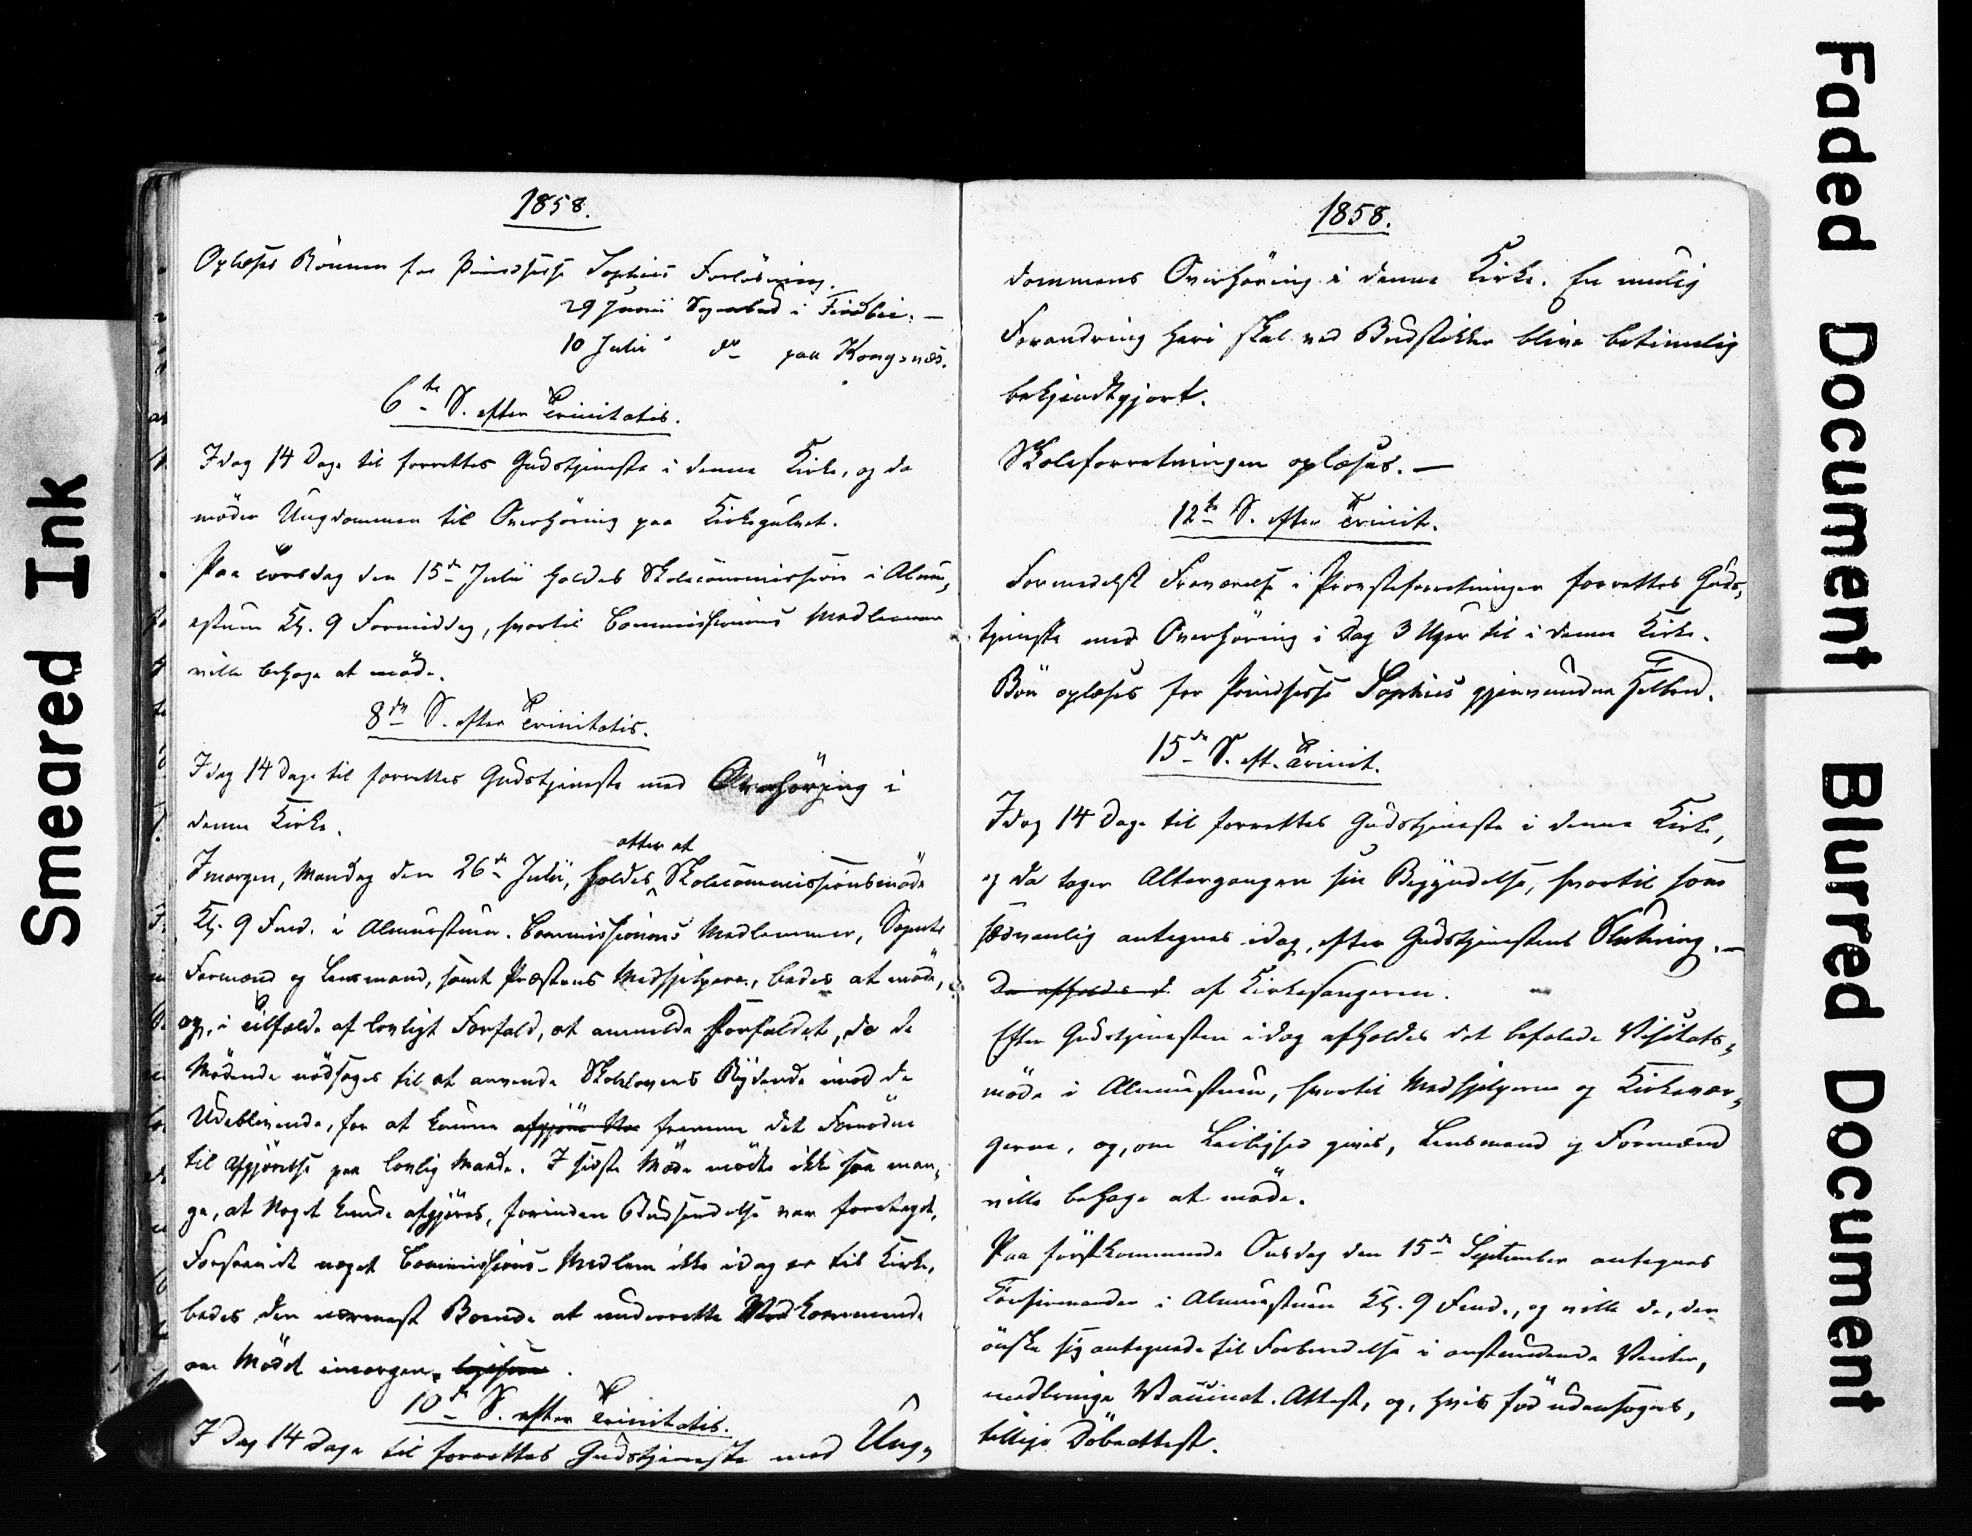 1858.
Oplæses Bönnen for Prindsesse Sophies Forlösning.
29 Junii Sognebud i Findbö. —
10 Julii do paa Kongsnæs.
6te S. efter Trinitatis.
Idag 14 Dage til forrettes Gudstjeneste i denne Kirke, og da
möder Ungdommen til Overhöring paa Kirkegulvet.
Paa Torsdag den 15de Julii holdes Skolecommission i Almu,
estuen Kl. 9 Formiddag, hvortil Commissionens Medlemmer
ville behage at möde.
8de S. efter Trinitatis.
Idag 14 Dage til forrettes Gudstjeneste med Overhöring i
denne Kirke.
Imorgen, Mandag den 26de Julii, holdes atter et Skolecommissionsmöde
Kl. 9 Fmd. i Almuestuen. Commissionens Medlemmer, Sognets
Formænd og Lensmand, samt Præstens Medhjelpere, bedes at möde,
og, i Tilfælde af lovligt Forfald, at anmelde Forfaldet, da de
Mödende nödsages til at anvende Skolelovens Bydende imod de
Udeblivende, for at kunne fremme det Fornödne
til Afgjörelse paa lovlig Maade. I sidste Möde mödte ikke saa man,
ge, at Noget kunde afgjöres, forinden Budsendelse var foretaget.
Forsaavidt noget Commissions-Medlem ikke idag er til Kirke,
bedes den nærmest Boende at underrette Vedkommende
om Mödet imorgen.
10de S. efter Trinitatis.
I Dag 14 Dage til forrettes Gudstjeneste med Ung,
1858.
dommens Overhöring i denne Kirke. En mulig
Forandring heri skal ved Budstikke blive betimelig
bekjendtgjort.
Skoleforretningen oplæses. —
12te S. efter Trinit.
Formedelst Fraværelse i Provsteforretninger forrettes Guds,
tjeneste med Overhöring i Dag 3 Uger til i denne Kirke.
Bön oplæses for Prindsesse Sophies gjenvundne Helbred.
15de S. eft. Trinit.
Idag 14 Dage til forrettes Gudstjeneste i denne Kirke,
og da tager Altergangen sin Begyndelse, hvortil som
sædvanlig antegnes idag, efter Gudstjenestens Slutning. —
Da afholdes d. af Kirkesangeren.
Efter Gudstjenesten idag afholdes det befalede Visitats,
möde i Almuestuen, hvortil Medhjelperne og Kirkevær,
gerne, og, om Leilighed gives, Lensmand og Formænd
ville behage at möde.
Paa förstkommende Onsdag den 15de September antegnes
Confirmander i Almuestuen Kl. 9 Fmd., og ville de, der
önske sig antegnede til Forberedelse i anstundende Vinter,
medbringe Vaccinat. Attest, og, hvis föd udensogns,
tillige Döbeattest.
Smeared Ink
Faded Document
Blurred Document